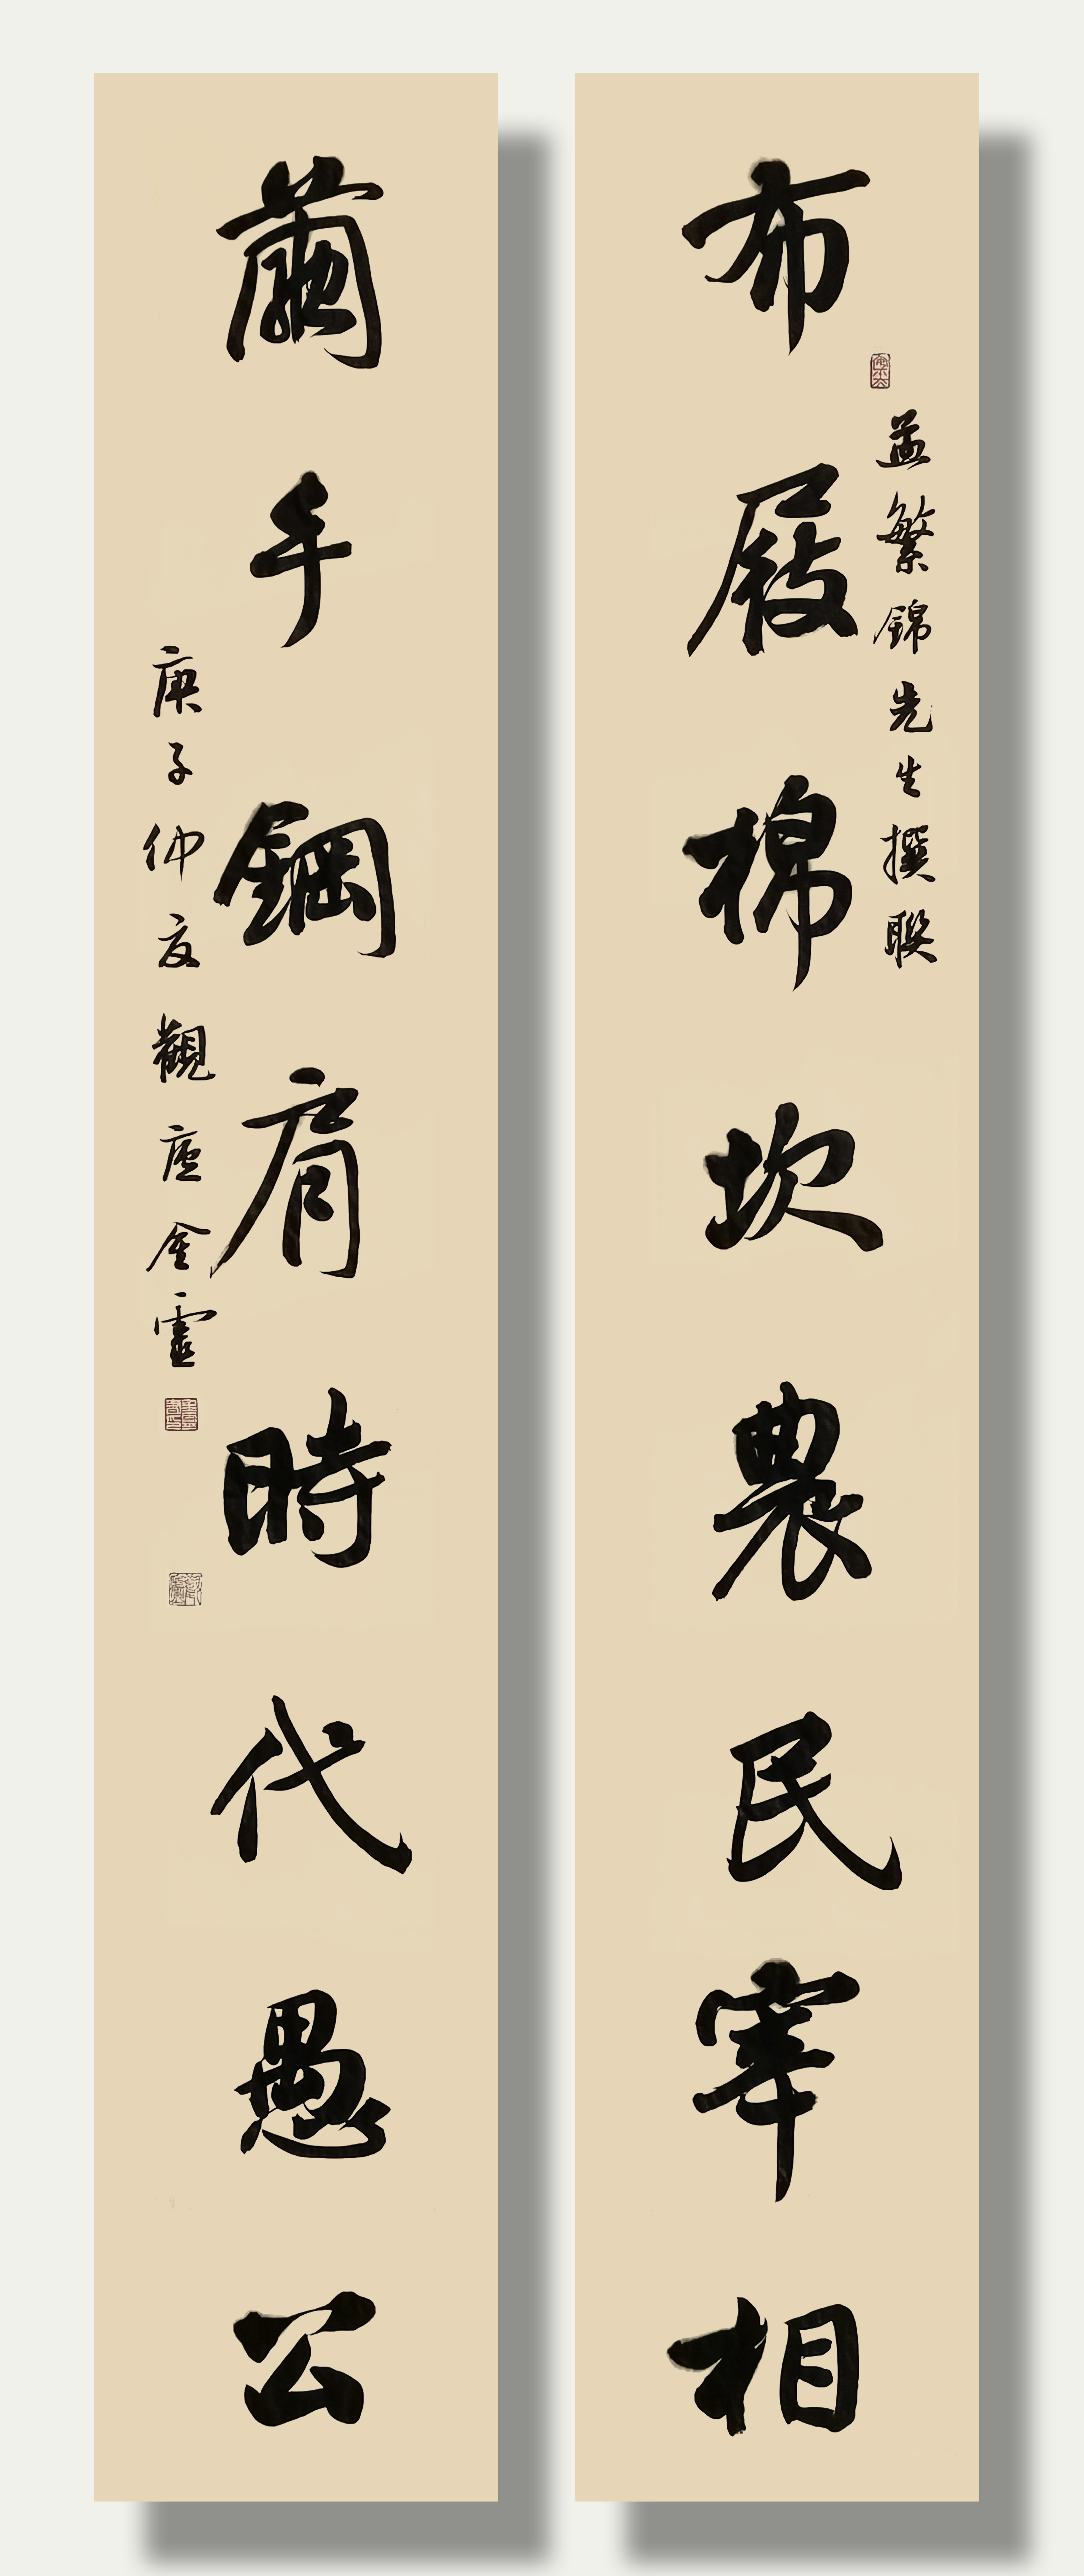 孟繁錦先生撰聯
布屐棉坎農民宰相
繭手鋼肩時代愚公
庚子仲夏觀廬金靈